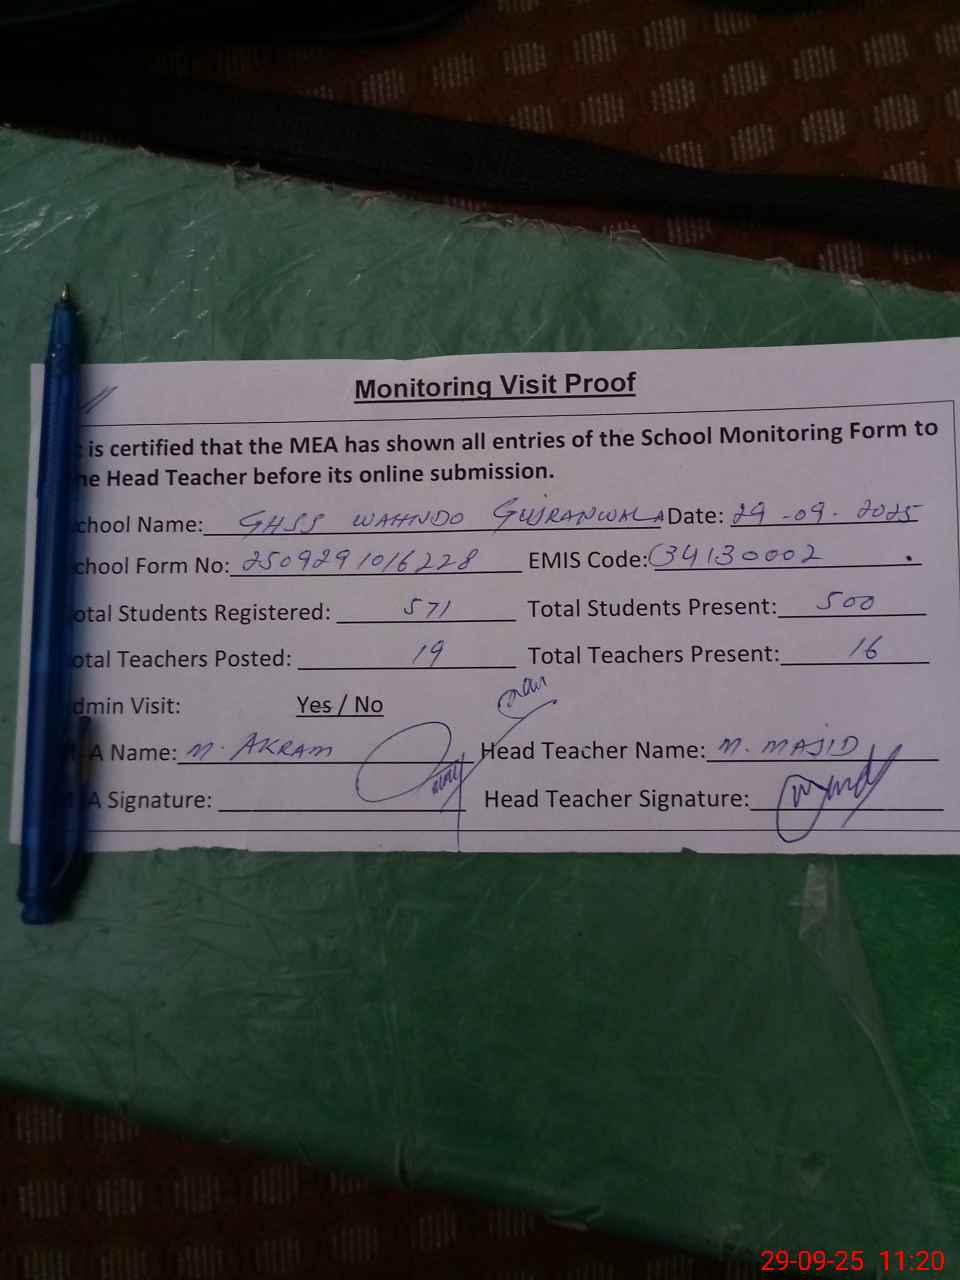 Monitoring Visit Proof
is certified that the MEA has shown all entries of the School Monitoring Form to
he Head Teacher before its online submission.
chool Name: GHSS WAHNDO GUJRANWALA Date: 29-09-2025
chool Form No: 2509291016228 EMIS Code: 34130002
otal Students Registered: 571 Total Students Present: 500
otal Teachers Posted: 19 Total Teachers Present: 16
dmin Visit: Yes / No
A Name: M. AKRAM Head Teacher Name: M. MAJID
A Signature: Head Teacher Signature:
29-09-25 11:20